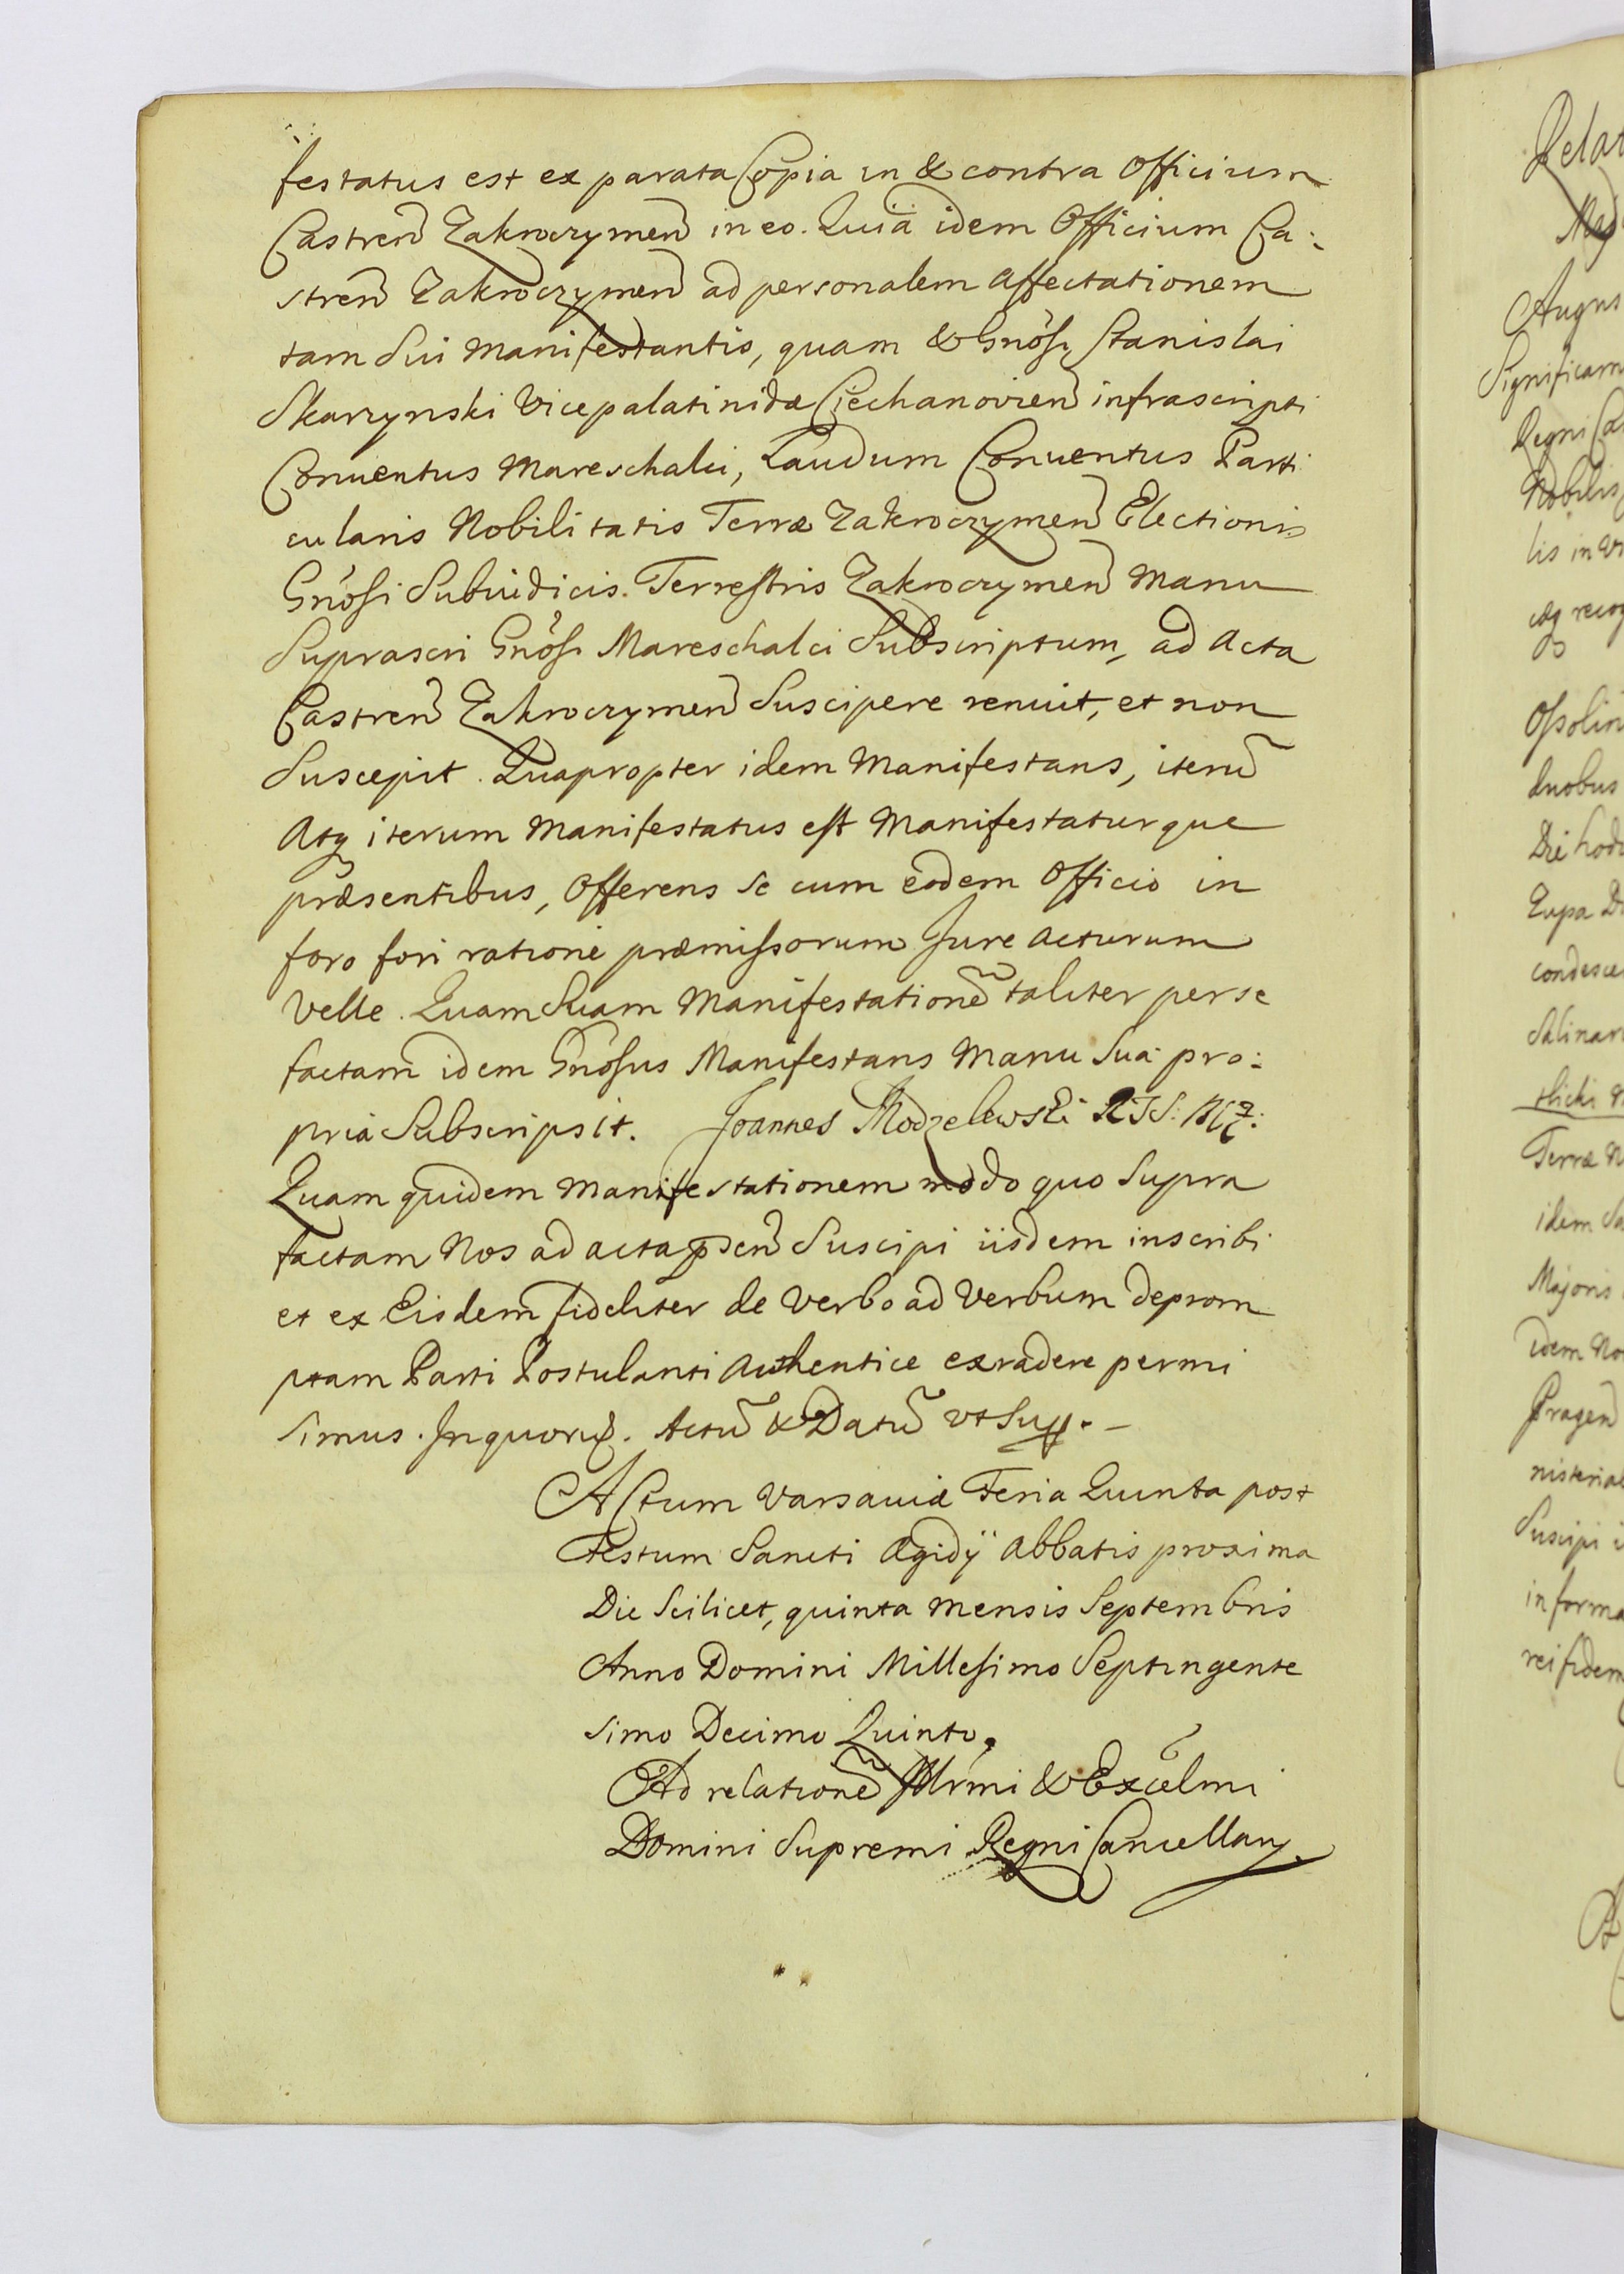 festatus est ex parata Copia in & contra Officium
Castren̄ Zakroczymen̄ in eo. Quia idem Officium Ca:
stren̄ Zakroczymen̄ ad personalem affectationem
tam Sui Manifestantis, quam & Gnösi Stanislai
Skarzynski Vicepalatinidæ Ciechanovien̄ infrascripti
Conventus Mareschalci, Laudum Conventus Parti
cularis Nobilitatis Terræ Zakroczymen̄ Electionis
Gnösi Subiudicis Terrestris Zakroczymen̄ Manu
Suprascri Gnösi Mareschalci Subscriptum, ad Acta
Castren̄ Zakroczymen̄ Suscipere renuit, et non
Suscepit. Quapropter idem Manifestans, iterū
Atq iterum Manifestatus est Manifestaturque
præsentibus, Offerens se cum eodem Officio in
foro fori ratione præmissorum Jure acturum
Velle. Quam Suam Manifestationē taliter per se
factam idem Gnösus Manifestans Manu Sua pro:
pria Subscripsit. Joannes Modzelewski
Quam quidem Manifestationem modo quo Supra
factam Nos ad acta pn̄sen̄ Suscipi iisdem inscribi
et ex Eisdem fideliter de Verbo ad Verbum deprom
ptam Parti Postulanti Authentice extradere permi
simus. In quorū. Actū & Datū vt Supp. –
Actum Varsaviæ Feria Quinta post
Festum Sancti Ægidÿ Abbatis proxima
Die Scilicet, quinta Mensis Septembris
Anno Domini Millesimo Septingente
simo Decimo Quinto.
Ad relationē Illr̄mi & Excelmi
Domini Supremi Regni Cancellarÿ
Relat
Augus
Significam
Regni Ca
Nobilis
lis in
Ossolin
duobus
Die hod
Lupa
condesce
Salinar
Terræ N
idem Sa
Majoris
idem No
Pragen̄
nisterial
Suscipi i
in forma
rei fidem